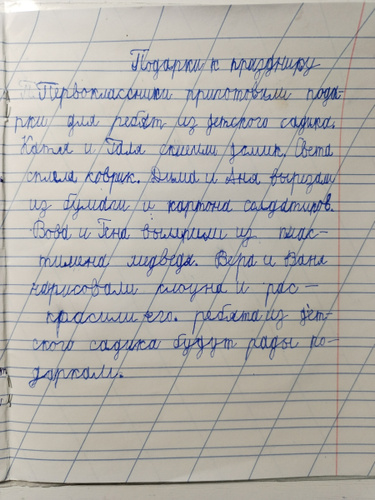 Подарки к празднику
Первоклассники приготовили пода-
рки для ребят из детского садика.
Катя и Галя сшили домик. Света
сплела коврик. Дима и Аня вырезали
из бумаги и картона солдатиков.
Вова и Гена вылепили из плас-
тилина медведя. Вера и Ваня
нарисовали клоуна и рас-
красили его. ребята из дет-
ского садика будут рады по-
даркам.